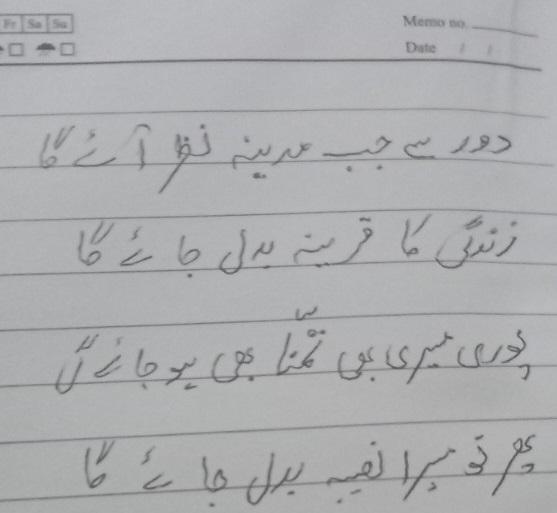 Fr Sa Su
Memo no.
Date / /
دور سے جب مدینہ نظر آئے گا
زندگی کا قرینہ بدل جائے گا
پوری میری بھی تمنا بھی ہو جائے گی
پھر تو میرا نصیبہ بدل جائے گا